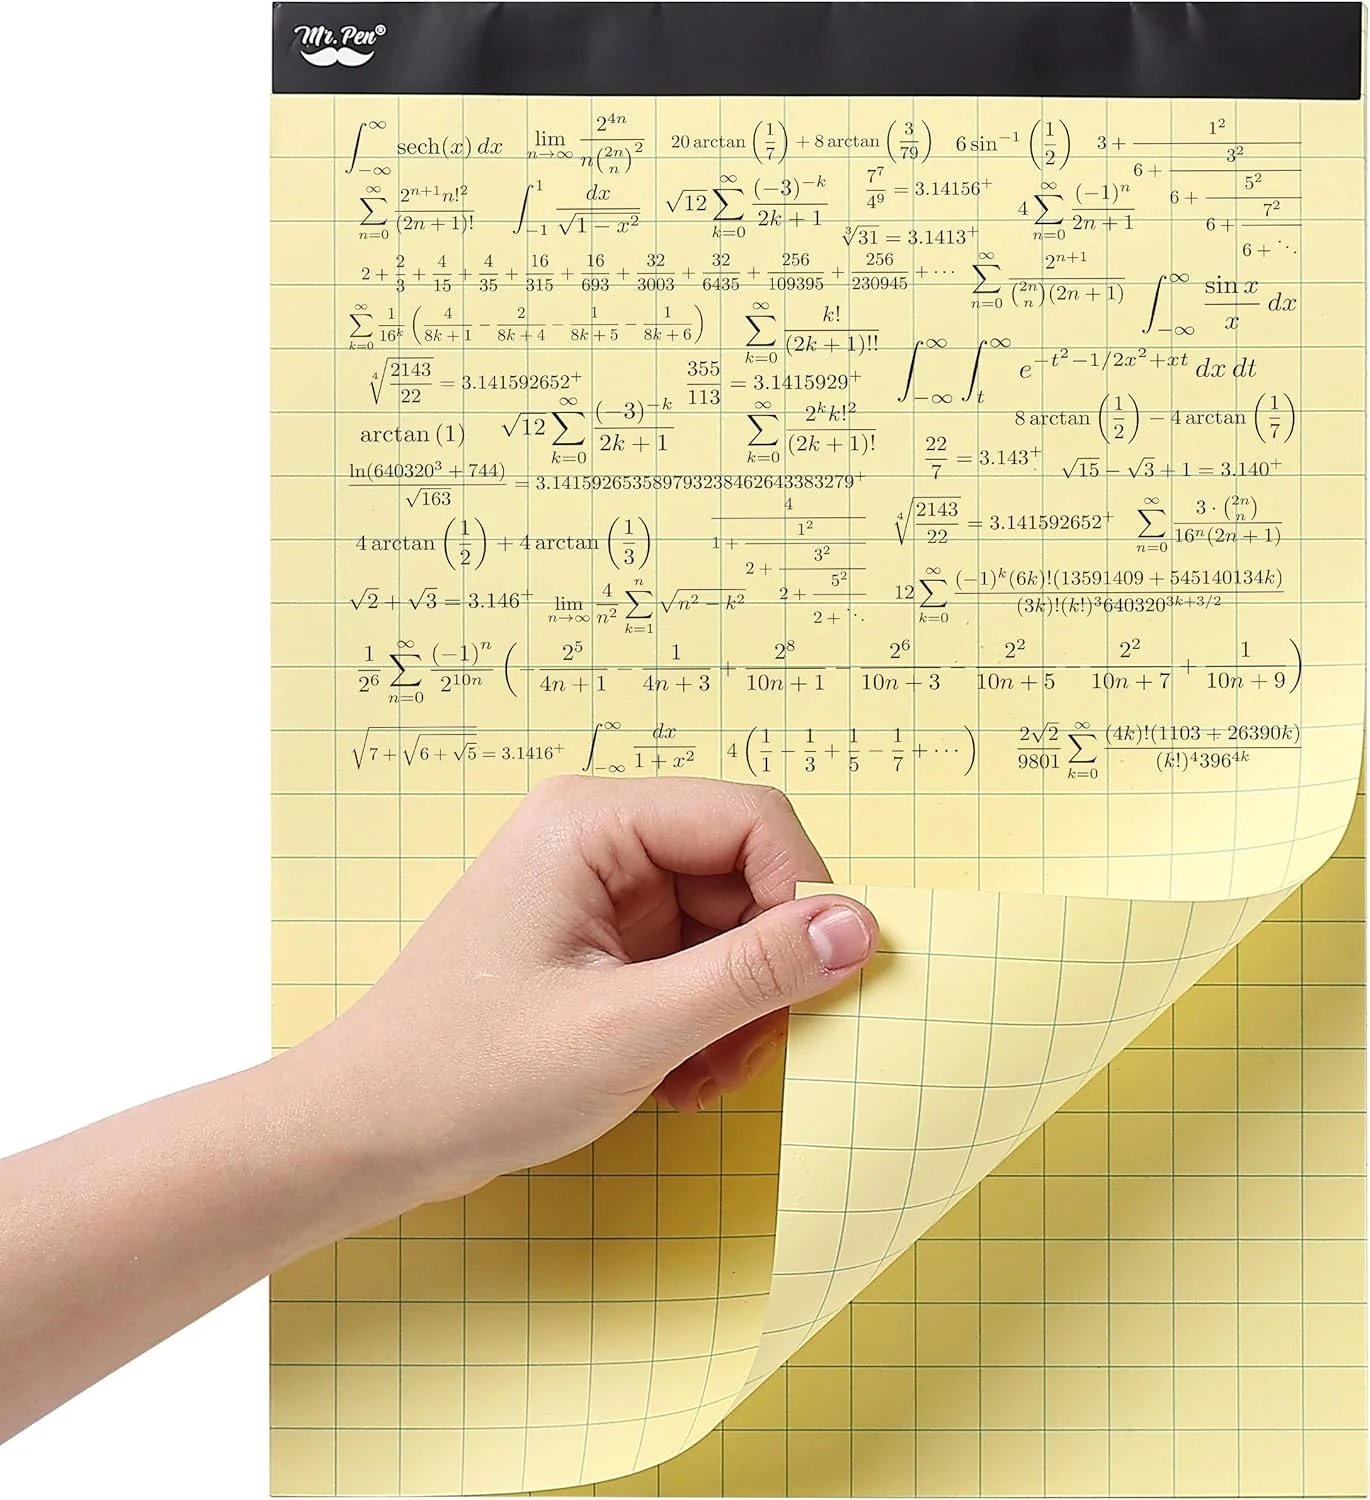 Mr. Pen®
∫_{-∞}^{∞} sech(x) dx   lim_{n→∞} 2^{4n} / (n \binom{2n}{n}^2)   20 arctan(1/7) + 8 arctan(3/79)   6 sin^{-1}(1/2)   3 + 1^2/(6 + 3^2/(6 + 5^2/(6 + 7^2/(6 + ⋱))))
∑_{n=0}^{∞} 2^{n+1}n!^2/(2n+1)!   ∫_{-1}^{1} dx/√(1 − x^2)   √12 ∑_{k=0}^{∞} (−3)^{−k}/(2k+1)   7^7/4^9 = 3.14156^+   4 ∑_{n=0}^{∞} (−1)^n/(2n+1)
∛31 = 3.1413^+
2 + 2/3 + 4/15 + 4/35 + 16/315 + 16/693 + 32/3003 + 32/6435 + 256/109395 + 256/230945 + ⋯   ∑_{n=0}^{∞} 2^{n+1}/(\binom{2n}{n}(2n+1))   ∫_{-∞}^{∞} sin x/x dx
∑_{k=0}^{∞} 1/16^k (4/(8k+1) − 2/(8k+4) − 1/(8k+5) − 1/(8k+6))   ∑_{k=0}^{∞} k!/(2k+1)!!   ∫_{-∞}^{∞} ∫_{t}^{∞} e^{−t^2−1/2x^2+xt} dx dt
∜(2143/22) = 3.141592652^+   355/113 = 3.1415929^+
arctan(1)   √12 ∑_{k=0}^{∞} (−3)^{−k}/(2k+1)   ∑_{k=0}^{∞} 2^k k!^2/(2k+1)!   8 arctan(1/2) − 4 arctan(1/7)
22/7 = 3.143^+   √15 − √3 + 1 = 3.140^+
ln(640320^3 + 744)/√163 = 3.14159265358979323846264338327​9^+
4 arctan(1/2) + 4 arctan(1/3)   4/(1 + 1^2/(2 + 3^2/(2 + 5^2/(2 + ⋱))))   ∜(2143/22) = 3.141592652^+   ∑_{n=0}^{∞} 3·\binom{2n}{n}/(16^n(2n+1))
√2 + √3 = 3.146^+   lim_{n→∞} 4/n^2 ∑_{k=1}^{n} √(n^2 − k^2)   12 ∑_{k=0}^{∞} (−1)^k(6k)!(13591409 + 545140134k)/((3k)!(k!)^3 640320^{3k+3/2})
1/2^6 ∑_{n=0}^{∞} (−1)^n/2^{10n} (−2^5/(4n+1) − 1/(4n+3) + 2^8/(10n+1) − 2^6/(10n+3) − 2^2/(10n+5) − 2^2/(10n+7) + 1/(10n+9))
√(7+√(6+√5)) = 3.1416^+   ∫_{-∞}^{∞} dx/(1 + x^2)   4(1/1 − 1/3 + 1/5 − 1/7 + ⋯)   2√2/9801 ∑_{k=0}^{∞} (4k)!(1103 + 26390k)/((k!)^4 396^{4k})